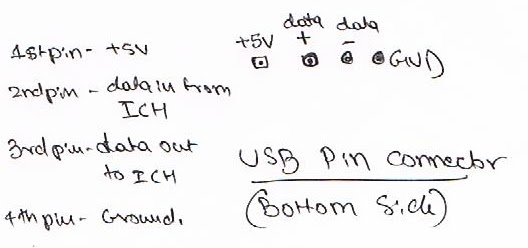 1st pin - +5V
2nd pin - data in from
ICH
3rd pin - data out
to ICH
4th pin - Ground.
data data
+5V + -
GND
USB Pin connector
(Bottom Side)